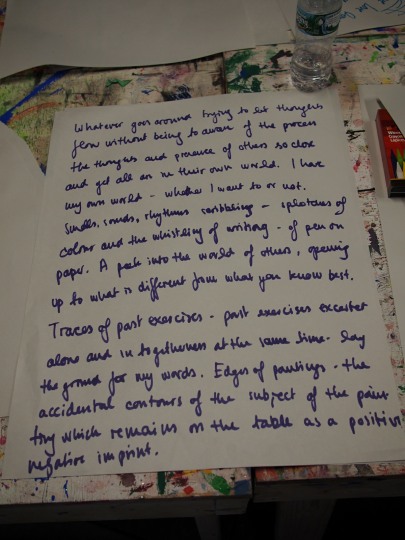 Whatever goes around trying to let thoughts
flow without being to aware of the process
the thoughts and presence of others so close
and yet all on in their own world. I have
my own world - whether I want to or not.
Smells, sounds, rhythms scribblings - splotches of
colour and the whistling of writing - of pen on
paper. A peek into the world of others, opening
up to what is different from what you know best.
Traces of past exercises - past exercises
alone and in togetherness at the same time - lay
the ground for my words. Edges of paintings - the
accidental contours of the subject of the pain
ting which remains on the table as a positive
negative imprint.